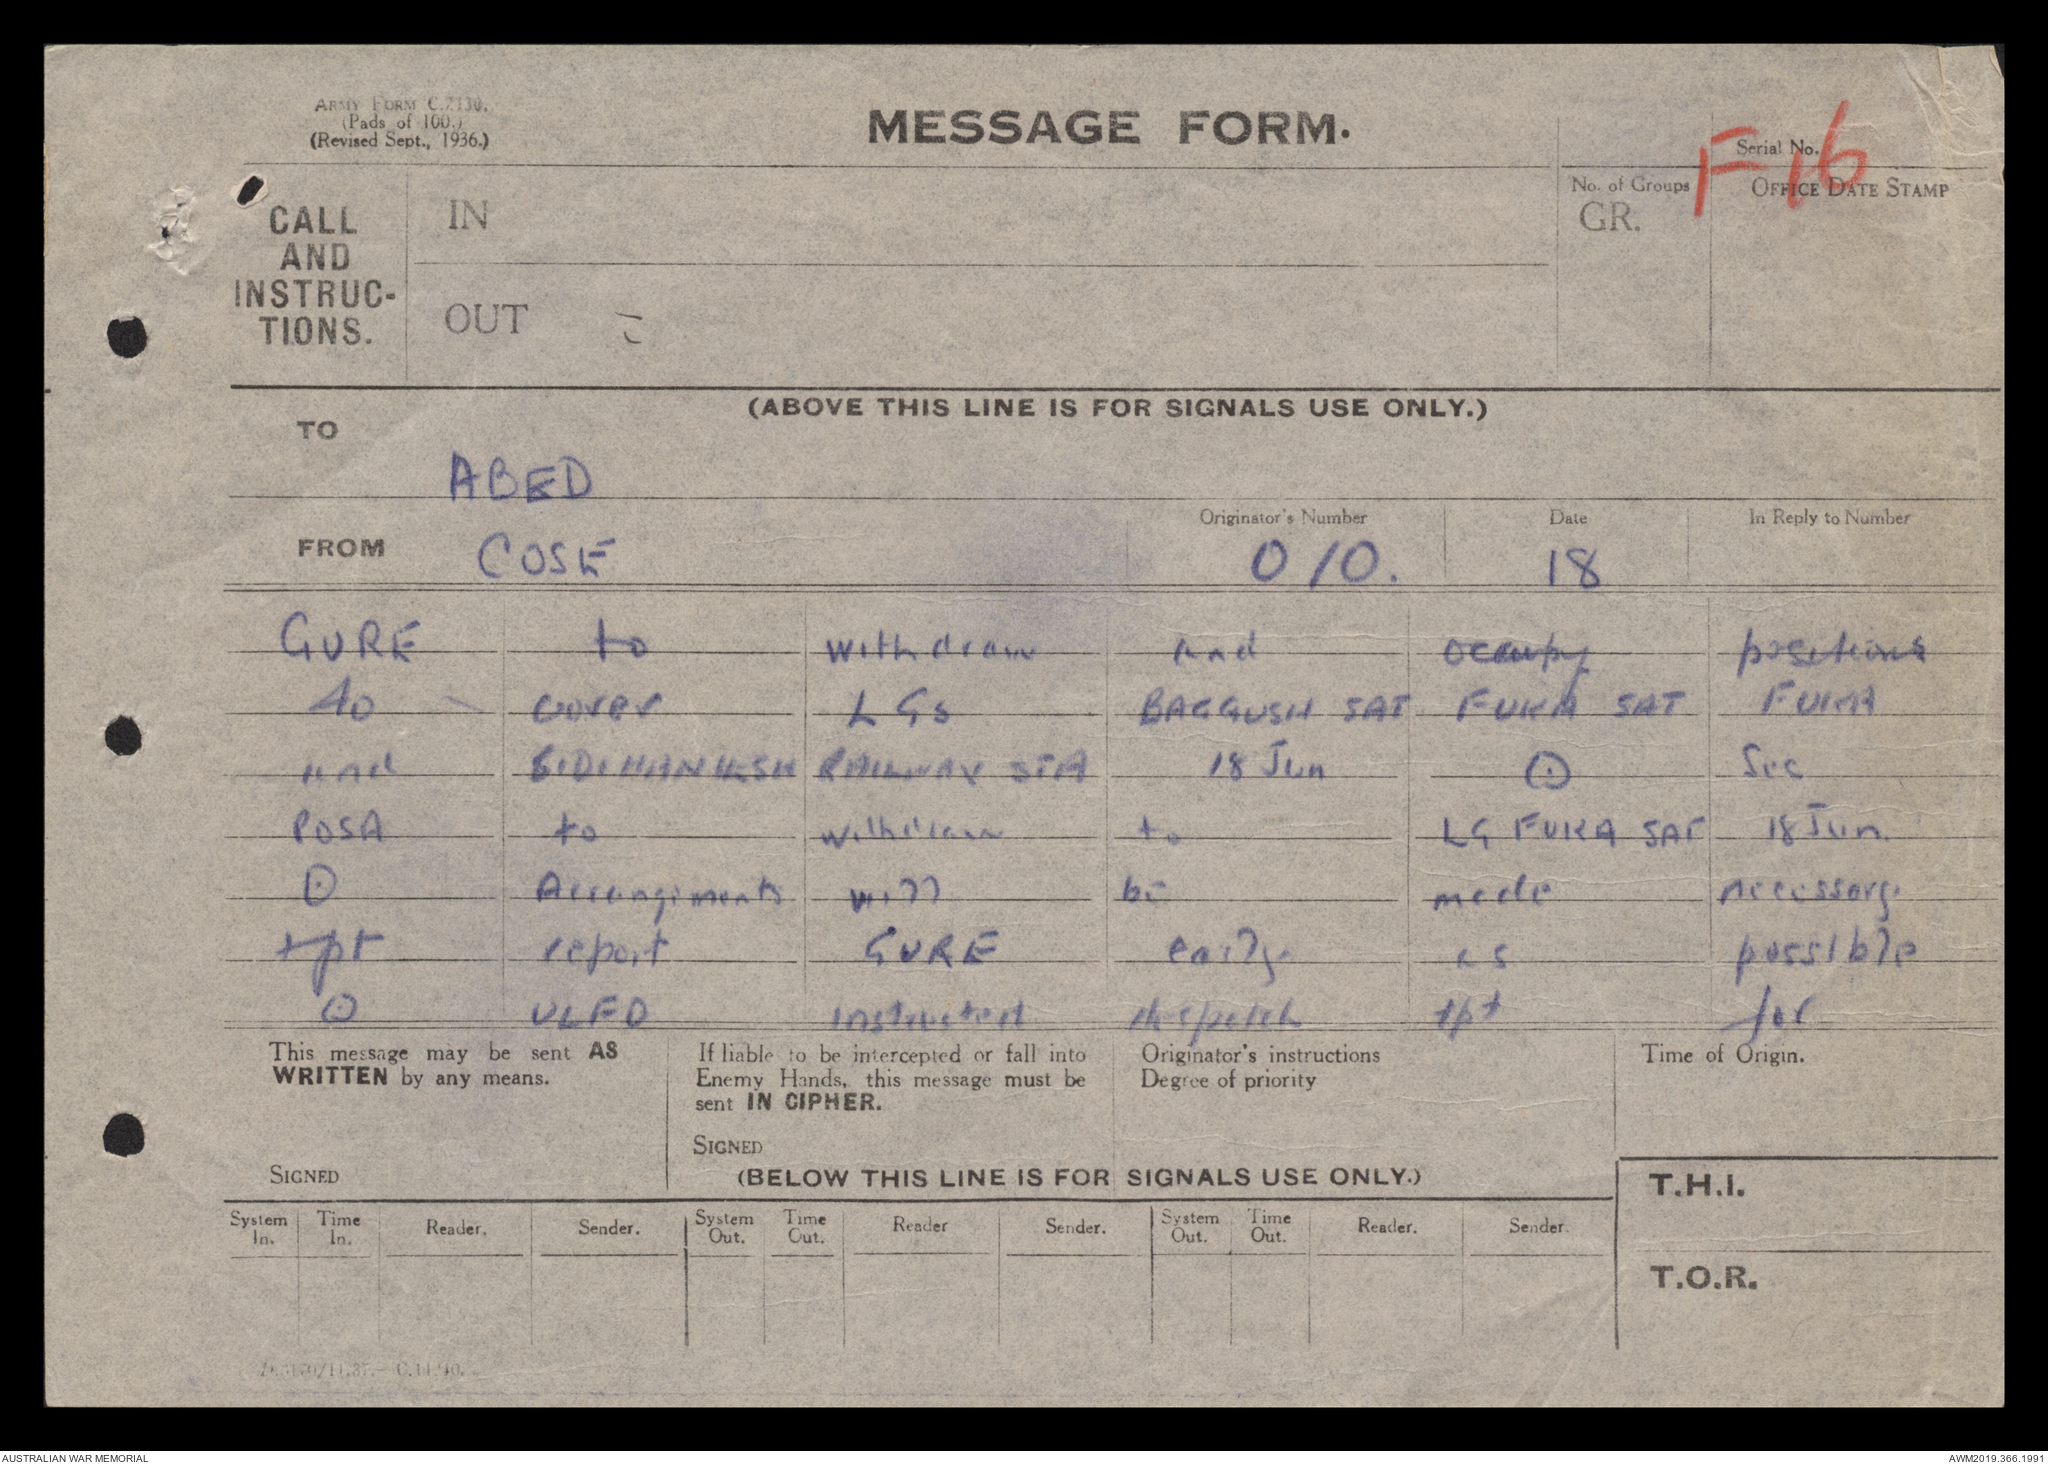 ARMY FORM C.2130.
(Pads of 100.)
(Revised Sept., 1936.)
MESSAGE FORM.
Serial No.
F16
CALL
AND
INSTRUC-
TIONS.
IN
OUT
No. of Groups
GR.
OFFICE DATE STAMP
(ABOVE THIS LINE IS FOR SIGNALS USE ONLY.)
TO
ABED
FROM
COSE
Originator's Number
O 10.
Date
18
In Reply to Number
GURE to withdraw and occupy positions
to cover LGs BAGGUSH SAT FUKA SAT FUKA
and SIDI HANEISH RAILWAY STA 18 Jun ⊙ Sec
POSA to withdraw to LG FUKA SAT 18 Jun.
⊙ Arrangements will be made necessary
tpt report GURE early as possible
⊙ ULFD instructed despatch tpt for
This message may be sent AS
WRITTEN by any means.
SIGNED
If liable to be intercepted or fall into
Enemy Hands, this message must be
sent IN CIPHER.
SIGNED
Originator's instructions
Degree of priority
Time of Origin.
(BELOW THIS LINE IS FOR SIGNALS USE ONLY.)
T.H.I.
T.O.R.
System In. Time In. Reader. Sender. System Out. Time Out. Reader Sender. System Out. Time Out. Reader. Sender.
AUSTRALIAN WAR MEMORIAL
AWM2019.366.1991